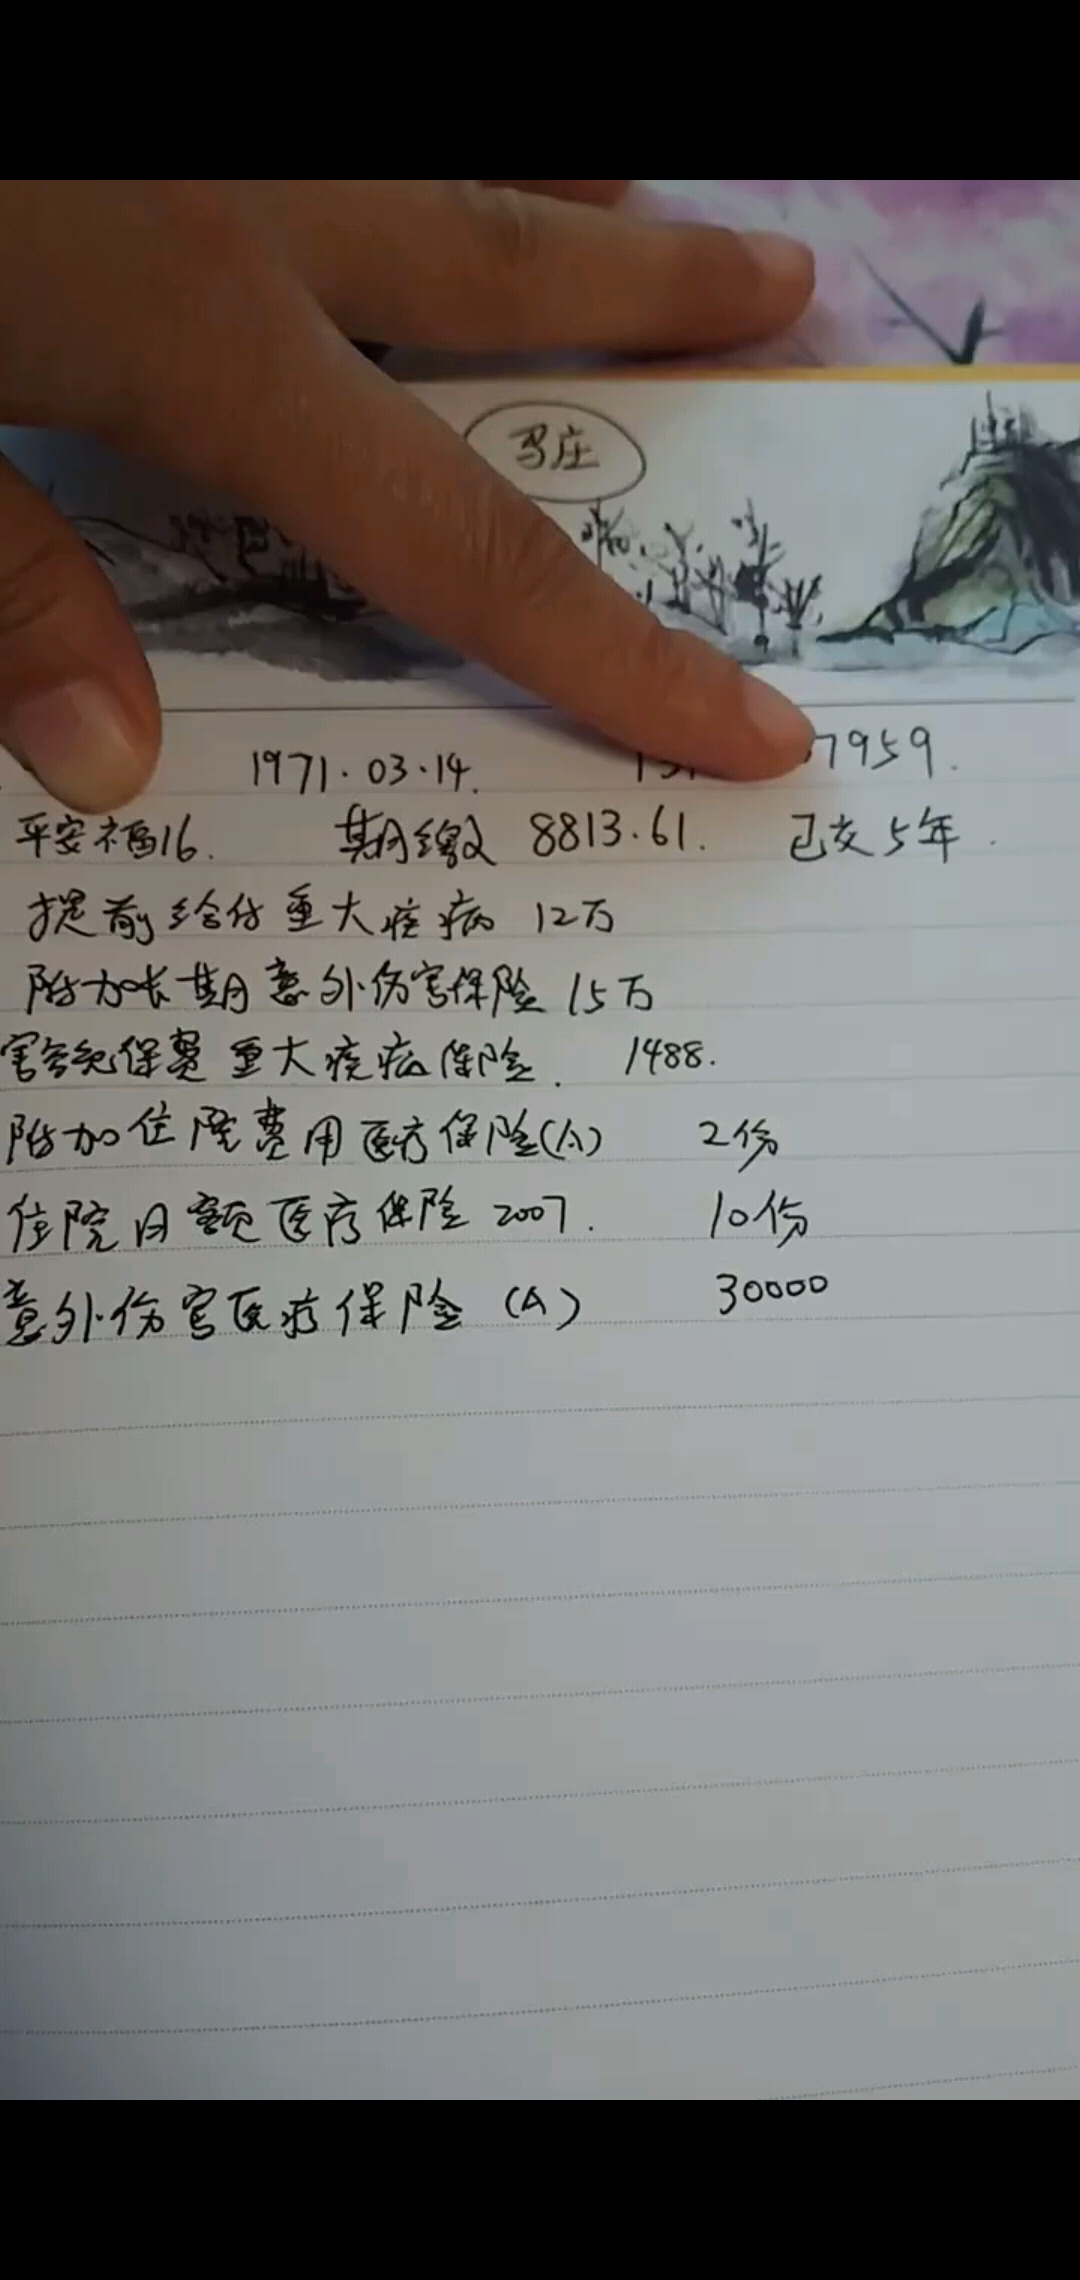 马庄
1971.03.14. 7959.
平安福16. 期缴 8813.61. 已交5年.
提前给付重大疾病 12万
附加长期意外伤害保险 15万
豁免保费重大疾病保险. 1488.
附加住院费用医疗保险(A) 2份
住院日额医疗保险 2007. 10份
意外伤害医疗保险 (A) 30000